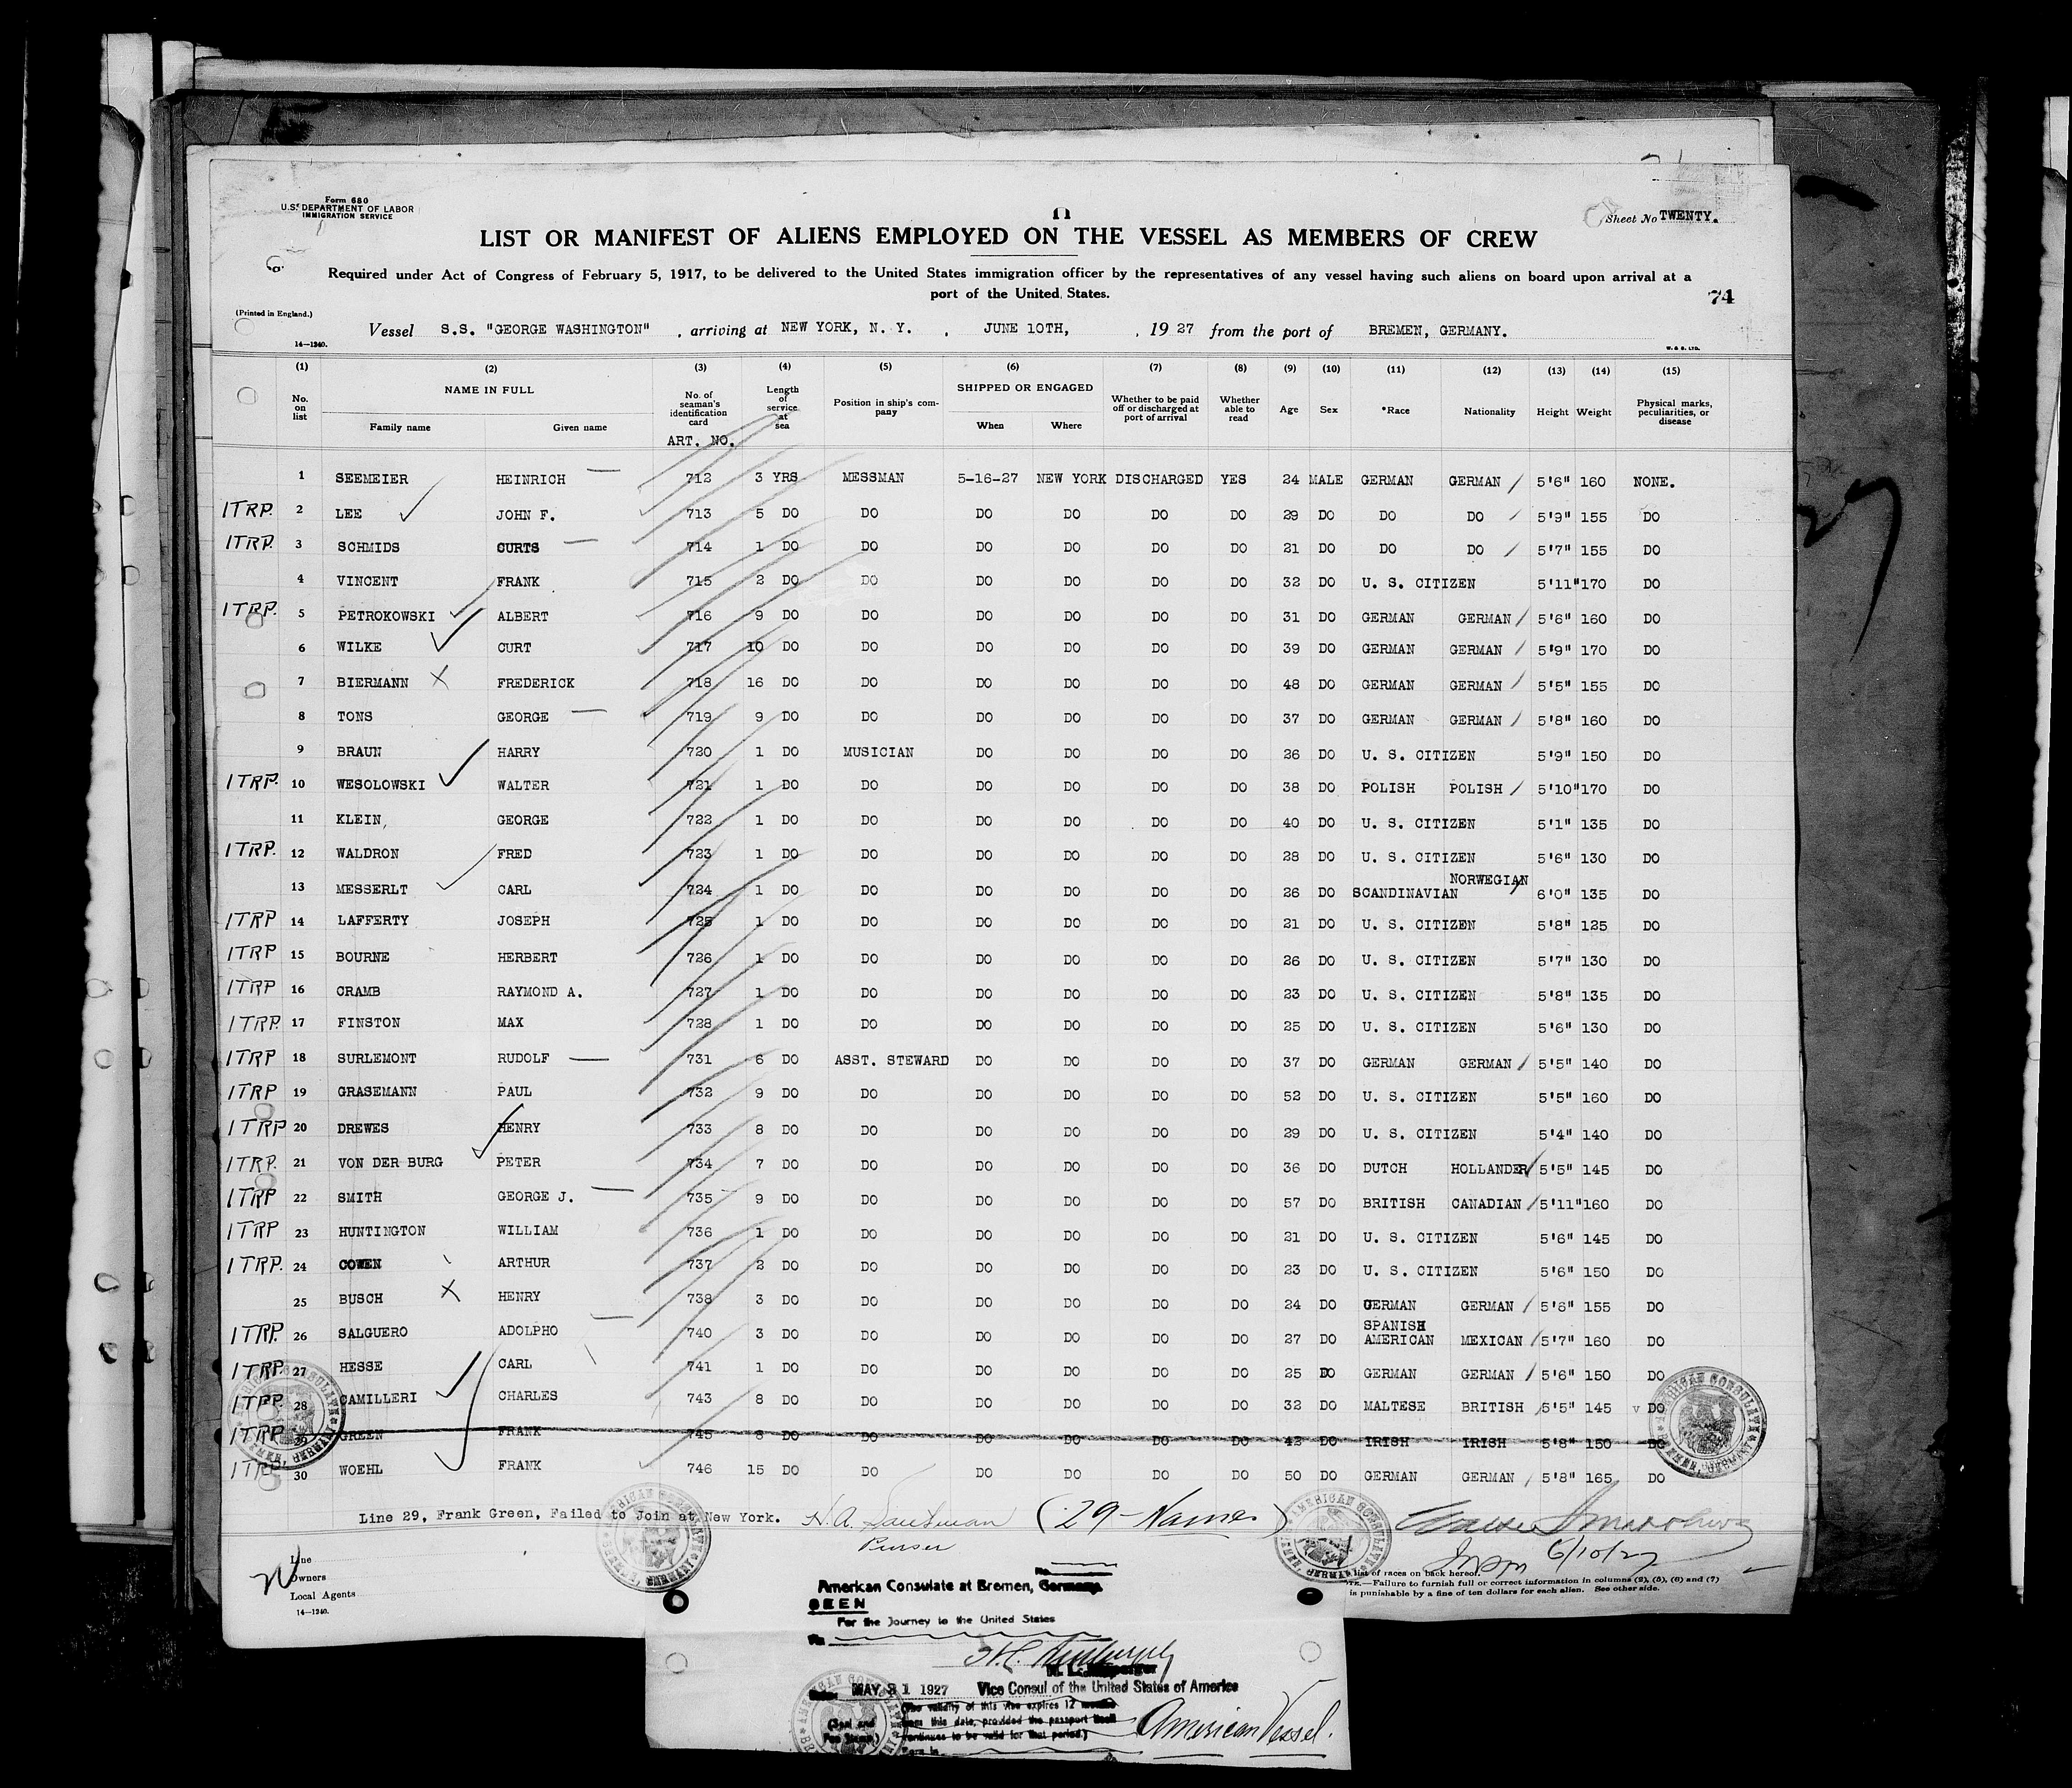 Form 680
U.S. DEPARTMENT OF LABOR
IMMIGRATION SERVICE
Sheet No TWENTY.
LIST OR MANIFEST OF ALIENS EMPLOYED ON THE VESSEL AS MEMBERS OF CREW
Required under Act of Congress of February 5, 1917, to be delivered to the United States immigration officer by the representatives of any vessel having such aliens on board upon arrival at a
port of the United States.
74
(Printed in England.)
Vessel S.S. "GEORGE WASHINGTON" , arriving at NEW YORK, N. Y. , JUNE 10TH, , 1927 from the port of BREMEN, GERMANY.
14—1240.
W. & S. LTD.
(1) (2) (3) (4) (5) (6) (7) (8) (9) (10) (11) (12) (13) (14) (15)
No. on list NAME IN FULL Family name Given name No. of seaman's identification card ART. NO. Length of service at sea Position in ship's company SHIPPED OR ENGAGED When Where Whether to be paid off or discharged at port of arrival Whether able to read Age Sex *Race Nationality Height Weight Physical marks, peculiarities, or disease
1 SEEMEIER HEINRICH 712 3 YRS MESSMAN 5-16-27 NEW YORK DISCHARGED YES 24 MALE GERMAN GERMAN 5'6" 160 NONE.
1TRP. 2 LEE JOHN F. 713 5 DO DO DO DO DO DO 29 DO DO DO 5'9" 155 DO
1TRP. 3 SCHMIDS CURTS 714 1 DO DO DO DO DO DO 21 DO DO DO 5'7" 155 DO
4 VINCENT FRANK 715 2 DO DO DO DO DO DO 32 DO U. S. CITIZEN 5'11" 170 DO
1TRP. 5 PETROKOWSKI ALBERT 716 9 DO DO DO DO DO DO 31 DO GERMAN GERMAN 5'6" 160 DO
6 WILKE CURT 717 10 DO DO DO DO DO DO 39 DO GERMAN GERMAN 5'9" 170 DO
7 BIERMANN X FREDERICK 718 16 DO DO DO DO DO DO 48 DO GERMAN GERMAN 5'5" 155 DO
8 TONS GEORGE 719 9 DO DO DO DO DO DO 37 DO GERMAN GERMAN 5'8" 160 DO
9 BRAUN HARRY 720 1 DO MUSICIAN DO DO DO DO 26 DO U. S. CITIZEN 5'9" 150 DO
1TRP. 10 WESOLOWSKI WALTER 721 1 DO DO DO DO DO DO 38 DO POLISH POLISH 5'10" 170 DO
11 KLEIN, GEORGE 722 1 DO DO DO DO DO DO 40 DO U. S. CITIZEN 5'1" 135 DO
1TRP. 12 WALDRON FRED 723 1 DO DO DO DO DO DO 28 DO U. S. CITIZEN 5'6" 130 DO
13 MESSERLT CARL 724 1 DO DO DO DO DO DO 26 DO SCANDINAVIAN NORWEGIAN 6'0" 135 DO
1TRP 14 LAFFERTY JOSEPH 725 1 DO DO DO DO DO DO 21 DO U. S. CITIZEN 5'8" 125 DO
1TRP 15 BOURNE HERBERT 726 1 DO DO DO DO DO DO 26 DO U. S. CITIZEN 5'7" 130 DO
1TRP 16 CRAMB RAYMOND A. 727 1 DO DO DO DO DO DO 23 DO U. S. CITIZEN 5'8" 135 DO
1TRP. 17 FINSTON MAX 728 1 DO DO DO DO DO DO 25 DO U. S. CITIZEN 5'6" 130 DO
1TRP 18 SURLEMONT RUDOLF 731 6 DO ASST. STEWARD DO DO DO DO 37 DO GERMAN GERMAN 5'5" 140 DO
1TRP 19 GRASEMANN PAUL 732 9 DO DO DO DO DO DO 52 DO U. S. CITIZEN 5'5" 160 DO
1TRP 20 DREWES HENRY 733 8 DO DO DO DO DO DO 29 DO U. S. CITIZEN 5'4" 140 DO
1TRP. 21 VON DER BURG PETER 734 7 DO DO DO DO DO DO 36 DO DUTCH HOLLANDER 5'5" 145 DO
1TRP 22 SMITH GEORGE J. 735 9 DO DO DO DO DO DO 57 DO BRITISH CANADIAN 5'11" 160 DO
1TRP 23 HUNTINGTON WILLIAM 736 1 DO DO DO DO DO DO 21 DO U. S. CITIZEN 5'6" 145 DO
1TRP. 24 COWEN ARTHUR 737 2 DO DO DO DO DO DO 23 DO U. S. CITIZEN 5'6" 150 DO
25 BUSCH X HENRY 738 3 DO DO DO DO DO DO 24 DO GERMAN GERMAN 5'6" 155 DO
1TRP. 26 SALGUERO ADOLPHO 740 3 DO DO DO DO DO DO 27 DO SPANISH AMERICAN MEXICAN 5'7" 160 DO
1TRP. 27 HESSE CARL 741 1 DO DO DO DO DO DO 25 DO GERMAN GERMAN 5'6" 150 DO
1TRP. 28 CAMILLERI CHARLES 743 8 DO DO DO DO DO DO 32 DO MALTESE BRITISH 5'5" 145 DO
1TRP 29 GREEN FRANK 745 8 DO DO DO DO DO DO 42 DO IRISH IRISH 5'8" 150 DO
1TRP 30 WOEHL FRANK 746 15 DO DO DO DO DO DO 50 DO GERMAN GERMAN 5'8" 165 DO
Line 29, Frank Green, Failed to Join at New York. (29-Names)
Purser
6/10/27
Line
Owners
Local Agents
14—1240.
list of races on back hereof.
—Failure to furnish full or correct information in columns (2), (5), (6) and (7)
is punishable by a fine of ten dollars for each alien. See other side.
No.
American Consulate at Bremen, Germany.
SEEN
For the Journey to the United States
Vice Consul of the United States of America
Date: MAY 31 1927
(The validity of this visa expires 12 months
from this date, provided the passport itself
continues to be valid for that period.)
(Seal and
Fee Stamp)
American Vessel.
AMERICAN CONSULATE